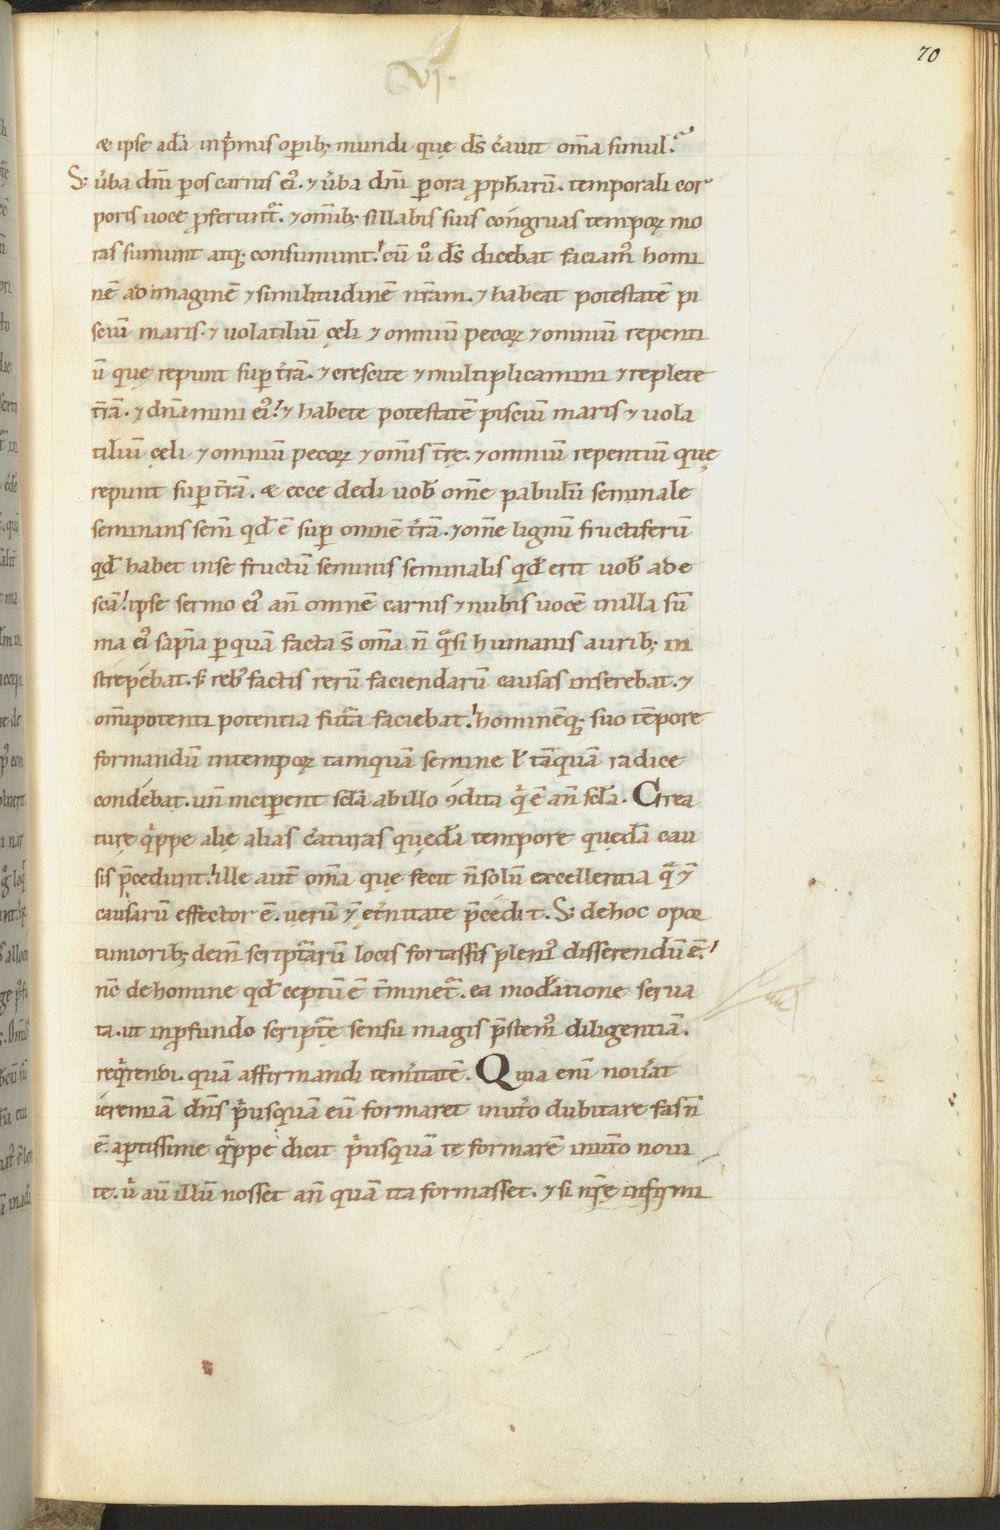 VI.
70
æ ipse adā inp̄mis oꝑib; mundi quę d̄s c̄auit om̄a simul.
S; ūba dn̄i ꝑ os carnis ei᾽. ⁊ ūba dn̄i ꝑ ora ꝓph̄arū. temporali cor
poris uoce ꝓferunt᾽. ⁊ om̄ib; sillabis suis congruas tempoꝝ mo
ras sumunt atq; consumunt. cū ū d̄s dicebat faciam᾽ homi
nē ad imaginē ⁊ similitudinē nr̄am. ⁊ habeat potestatē pi
sciū maris. ⁊ uolatiliū cęli ⁊ omniū pecoꝝ ⁊ omniū repenti
ū quę repunt suꝑ t̄rā. ⁊ crescite ⁊ multiplicamini ⁊ replete
t̄rā. ⁊ dn̄amini ei᾽. ⁊ habete potestatē pisciū maris ⁊ uola
tiliū cęli ⁊ omniū pecoꝝ ⁊ om̄is t̄rę. ⁊ omniū repentiū quę
repunt suꝑ t̄rā. æ ecce dedi uob̄ om̄e pabulū seminale
seminans sem̄ qd̄ ē suꝑ omnē t̄rā. ⁊ om̄e lignū fructiferū
qd̄ habet inse fructū seminis seminalis qd̄ erit uob̄ ad e
scā. ipse sermo ei᾽ an̄ omnē carnis ⁊ nubis uocē in illa sū
ma ei᾽ sap̄ia ꝑ quā facta s̄ om̄a n̄ q̄si humanis aurib; in
strepebat. s; reb᾽ factis rerū faciendarū causas inserebat. ⁊
om̄ipotenti potentia fut̄a faciebat. hominēq; suo tēpore
formandū in tempoꝝ tamquā semine ł tāquā radice
condebat. un̄ inciꝑent sc̄la ab illo ꝯdita q̄ ē an̄ sc̄la. Crea
turę q̄ppe alię alias c̄aturas quędā tempore quędā cau
sis p̄cedunt. ille aut̄ om̄a quę fecit n̄ solū excellentia q̄ ⁊
causarū effector ē. uerū ⁊ et̄nitate p̄cedit. S; de hoc opor
tuniorib; dein̄ scriptarū locis fortassis pleni᾽ disserendū ē.
nc̄ de homine qd̄ ceptū ē t̄minet᾽. ea mod̄atione serua
ta. ut in ꝓfundo scriptę sensu magis p̄stem᾽ diligentiā.
req̄rendi. quā affirmandi tem̄itatē. Quia enī nou̅at
ieremiā dn̄s p̄usquā eū formaret in ut̄o dubitare fas n̄
ē. aꝑtissime q̄ppe dicit p̄usquā te formarē in ut̄o noui
te. ū aū illū nosset an̄ quā ita formasset. ⁊ si nr̄ę infirmi